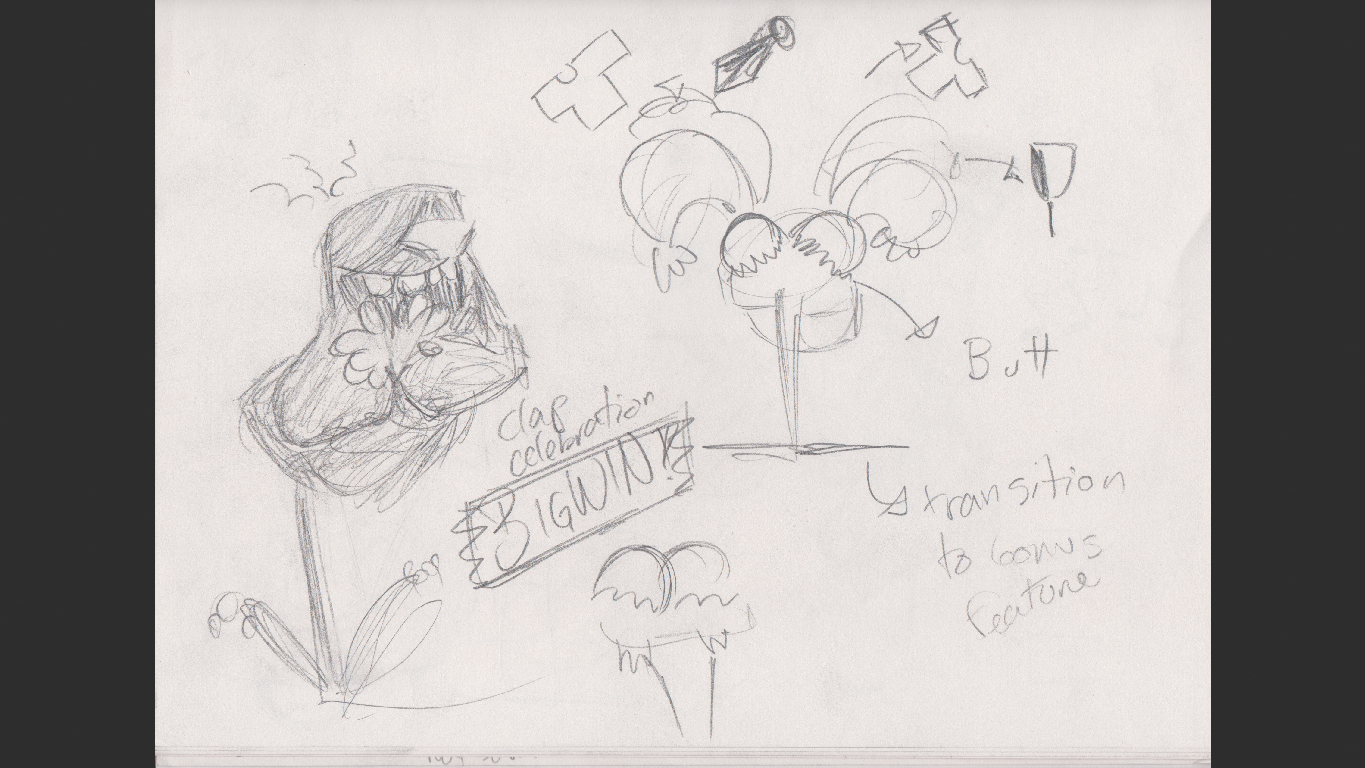 clap
celebration
BIG WIN!
Butt
transition
to bonus
feature